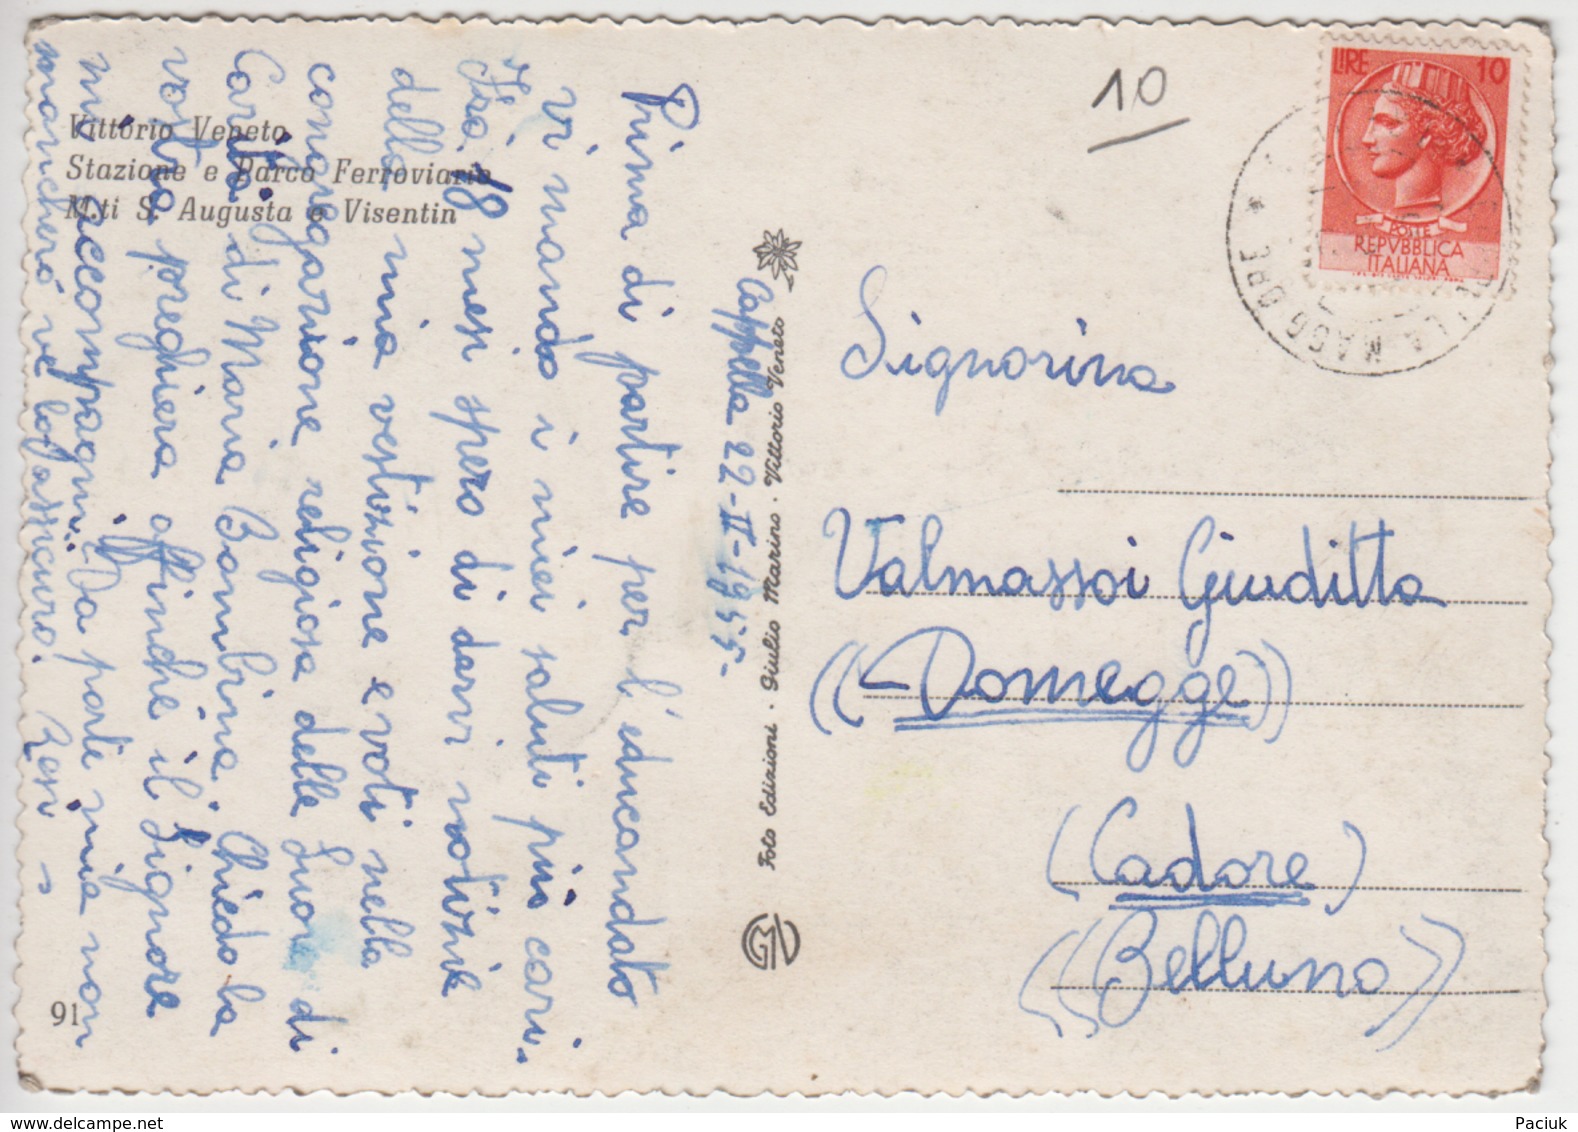 Vittorio Veneto
Stazione e Parco Ferroviario
M.ti S. Augusta e Visentin
91
Cappella 22-II-1955-
Prima di partire per l'educandato
vi mando i miei saluti più cari.
Fra 18 mesi spero di darvi notizie
della mia vestizione e voti nella
congregazione religiosa delle Suore di
Carità di Maria Bambina. Chiedo la
vostra preghiera affinché il Signore
mi accompagni. Da parte mia non
mancherò ve lo assicuro.
Foto Edizioni · Giulio Marino · Vittorio Veneto
GMV
10
LIRE 10
POSTE
REPVBBLICA
ITALIANA
MAGGIORE *
Signorina
Valmassoi Giuditta
((Domegge))
(Cadore)
((Belluno))
Paciuk